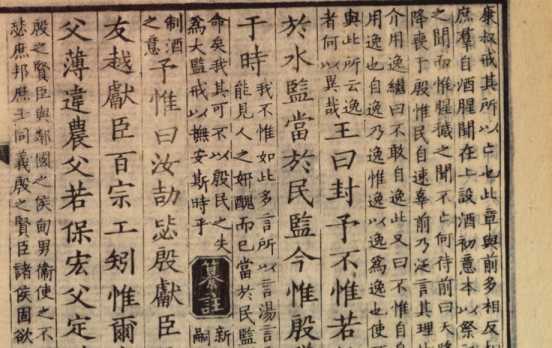 康叔戒其所以亡也此章與前多相反
庶羣自酒腥聞在上設酒初意本以祭
之聞而惟腥穢之聞不亡何待前曰天降
降喪于殷惟民自速辜前乃泛言其理
介用逸繼曰不敢自逸此又曰不惟自
用逸也自逸乃逸惟逸以逸爲逸也使
與此所云逸
者何以異哉
王曰封予不惟若
於水監當於民監今惟殷
于時
我不惟如此多言所以言湯言
能見人之妍醜而已當於民監
命矣我其可不以殷民之失
爲大監戒以撫安斯時乎
纂註
新
嗣
制酒
之意
予惟曰汝劼毖殷獻臣
友越獻臣百宗工矧惟爾
父薄違農父若保宏父定
殷之賢臣與鄰國之侯甸男衞使之不
瑟庶邦庶士同義殷之賢臣諸侯固欲